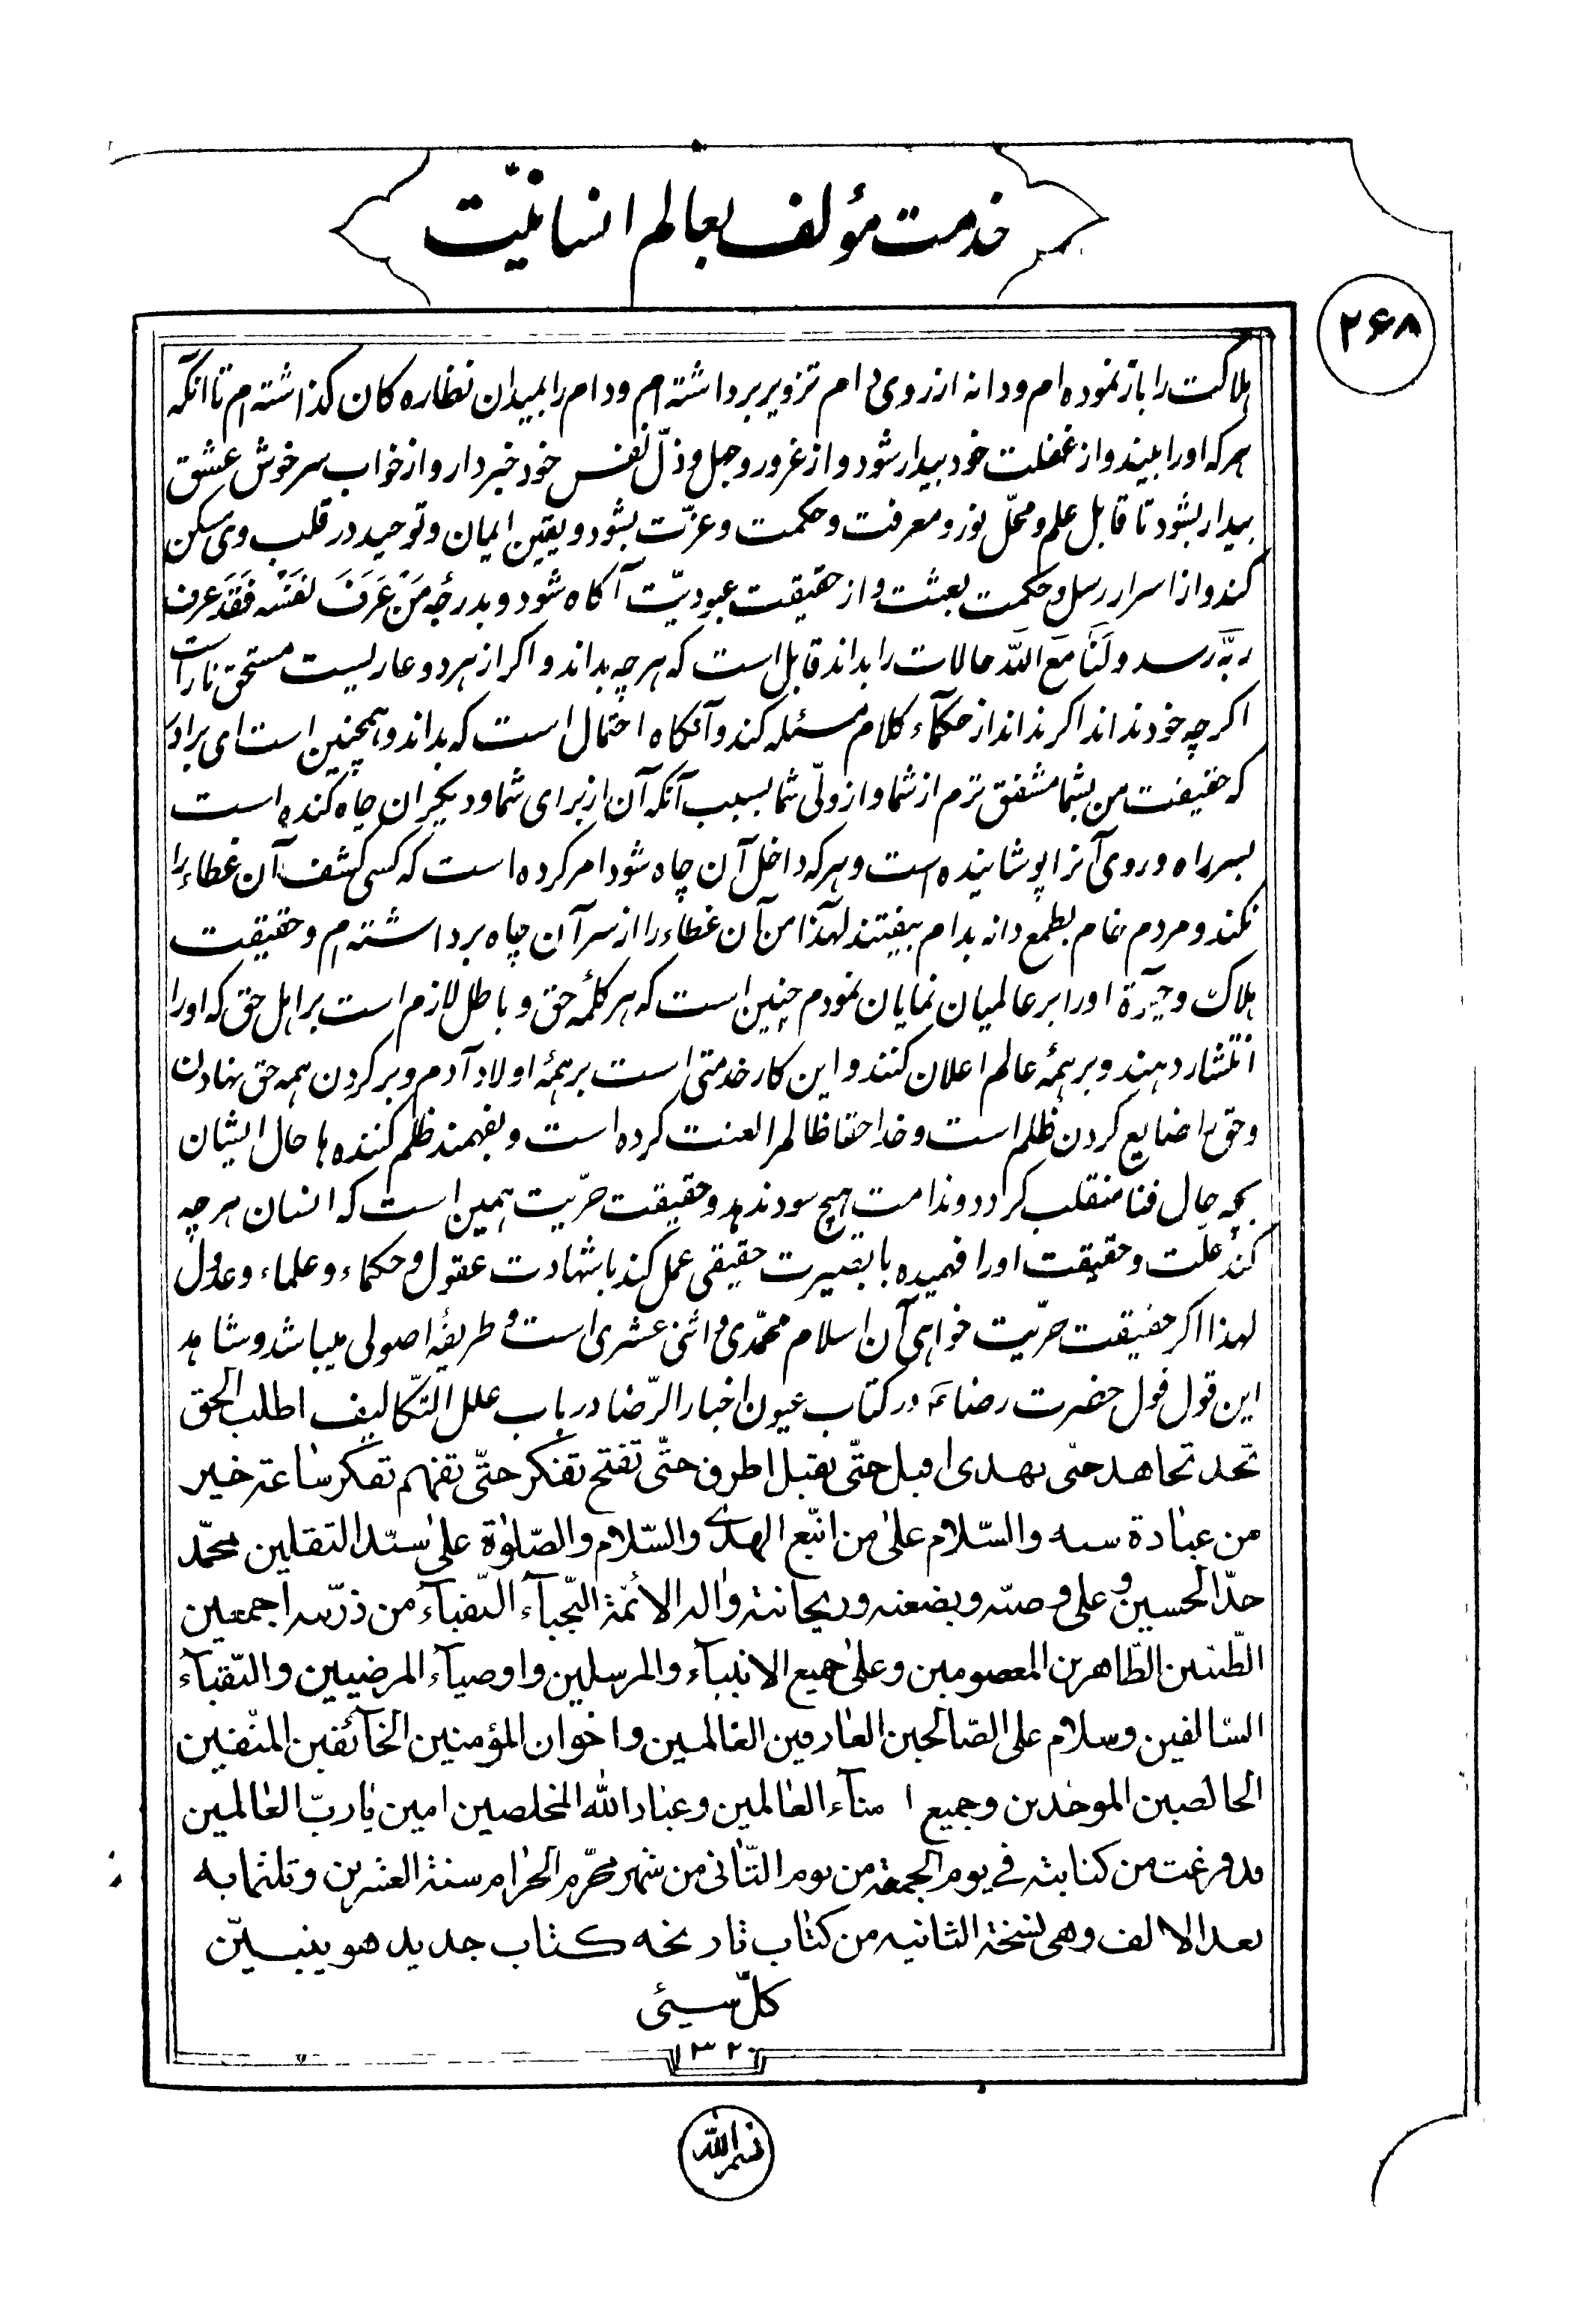 خدمت مؤلف بعالم انسانیّت
۲۶۸
هلاکت را باز نموده ام و دانه از روی دام تزویر برداشته ام و دام را بمیدان نظاره کان کذاشته ام تا آنکه
هر که او را ببیند و از غفلت خود بیدار شود و از غرور و جهل و ذلّ نفس خود خبردار و از خواب سرخوش عشق
بیدار بشود تا قابل علم و محلّ نور و معرفت و حکمت و عزّت بشود و یقین ایمان و توحید در قلب وی مسکن
کند و از اسرار رسل و حکمت بعثت و از حقیقت عبودیّت آکاه شود و بدرجه مَنْ عَرَفَ نفسَه فَقَد عرف
ربَّه رسد و لَنَا مَعَ اللّه حالات را بداند قابل است که هر چه بداند و اکر از هر دو عاریست مستحق نار است
اکر چه خود نداند اکر نداند از حکمآء کلام مسئله کند و آنکاه احتمال است که بداند و همچنین است ای برادر
که حقیقت من بشما مشفق ترم از شما و از ولّی شما بسبب آنکه آن از برای شما و دیکران چاه کنده است
بسر راه و روی آنرا پوشانیده است و هر که داخل آن چاه شود امر کرده است که کسی کشف آن غطاء را
نکند و مردم خام بطمع دانه بدام بیفتند لهذا من آن غطاء را از سر آن چاه برداشته ام و حقیقت
هلاک و حیرة او را بر عالمیان نمایان نمودم چنین است که هر کلمهٔ حق و باطل لازم است بر اهل حق که او را
انتشار دهند و بر همهٔ عالم اعلان کنند و این کار خدمتی است بر همهٔ اولاد آدم و بر کردن همه حق نهادن
و حق را ضایع کردن ظلم است و خدا حقا ظالمرا لعنت کرده است و بفهمند ظلم کننده ها حال ایشان
بچه حال فنا منقلب کردد و ندامت هیچ سود ندهد و حقیقت حرّیت همین است که انسان هر چه
کند علت و حقیقت او را فهمیده با بصیرت حقیقی عمل کند با شهادت عقول و حکماء و علماء و عدول
لهذا اکر حقیقت حرّیت خواهی آن اسلام محمّدی و اثنی عشری است و طریقهٔ اصولی میباشد و شاهد
این قول قول حضرت رضاء ع در کتاب عیون اخبار الرّضا در باب علل التّکالیف اطلب الحق
تجد تجاهد حتی تهدی اقبل حتّی تقبل اطرق حتّی تفتح تفکر حتّی تفهم تفکر ساعة خیر
من عبادة سنه والسّلام علی من اتّبع الهدی والسّلام والصّلوة علی سیّد الثقلین محمّد
جدّ الحسین و علی وصیّه و بضعته و ریحانته واله الائمّة النّجبآء النّقبآء من ذرّیته اجمعین
الطّیبین الطّاهرین المعصومین و علی جمیع الانبیآء والمرسلین واوصیآء المرضیین والنّقبآء
السّالفین وسلام علی الصّالحین العارفین العالمین واخوان المؤمنین الخآئفین المتّقین
الخالصین الموحّدین وجمیع امنآء العالمین وعباد الله المخلصین امین یا ربّ العالمین
قد فرغت من کتابته فی یوم الجمعة من یوم الثّانی من شهر محرّم الحرام سنة العشرین وثلثمایه
بعد الالف وهی نسخة الثانیه من کتاب تاریخه کتاب جدید هو ینبیّن
کلّ سیئی
۱۳۲۰